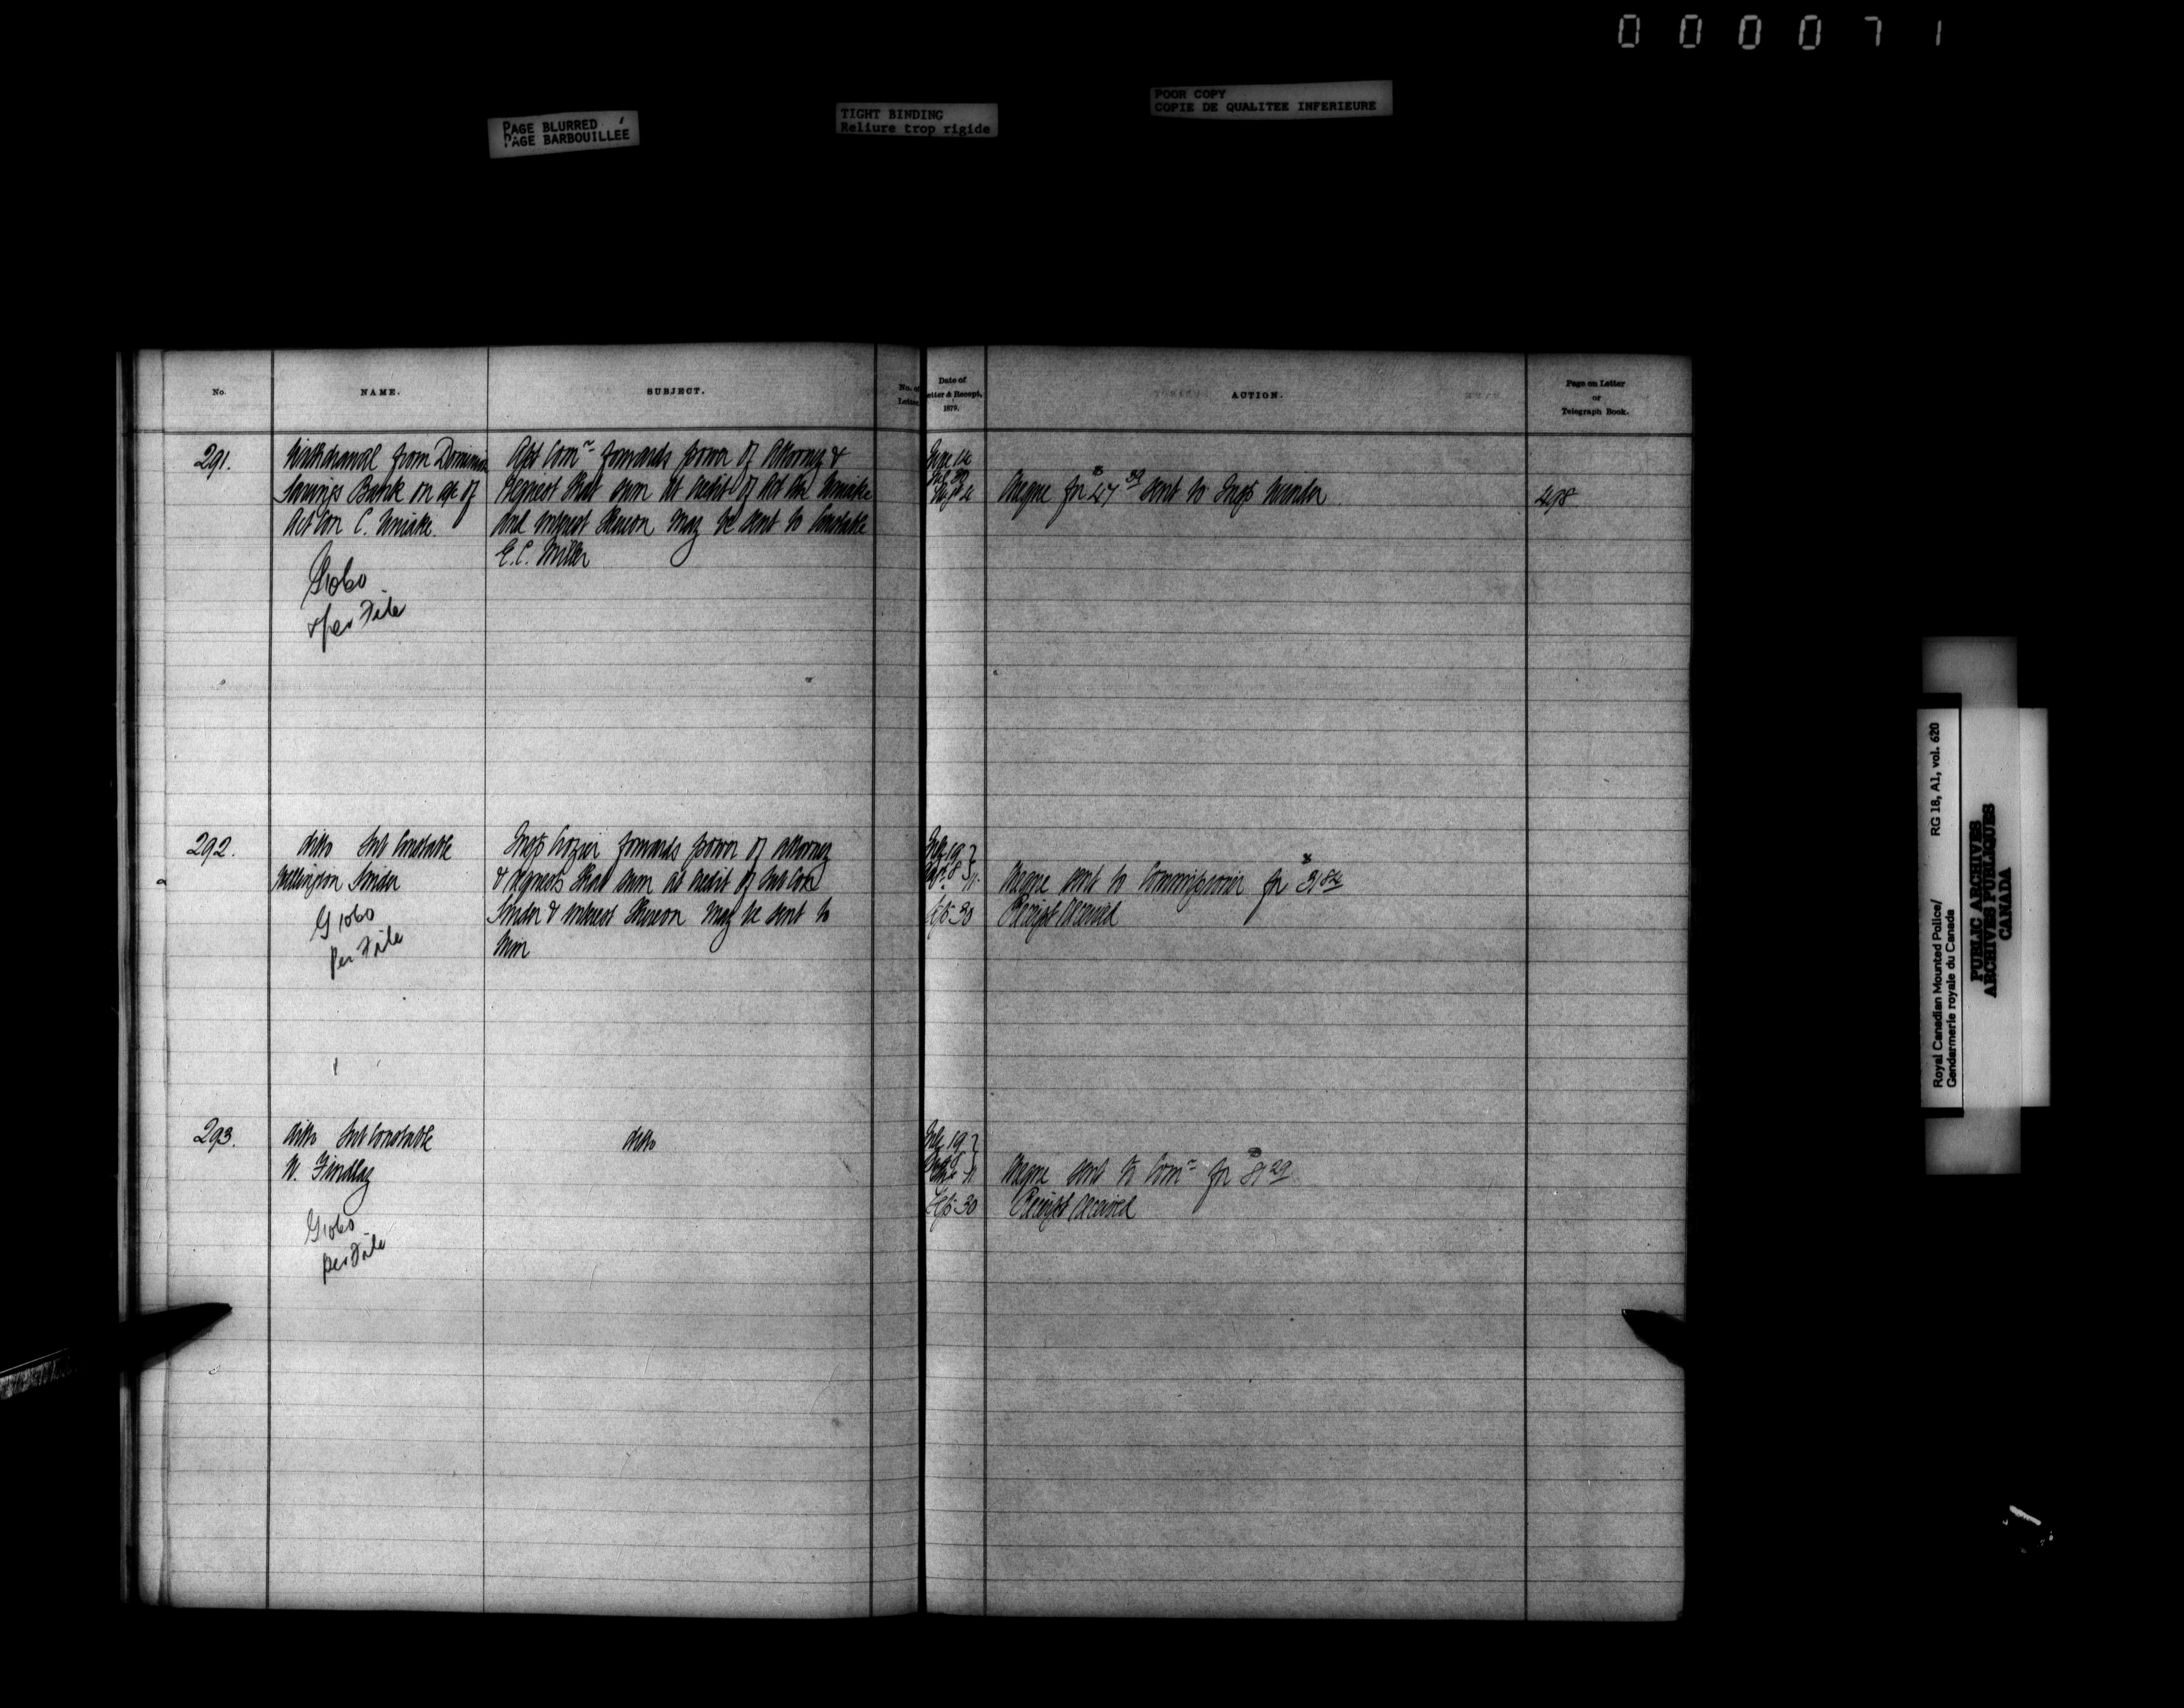 000071
PAGE BLURRED
PAGE BARBOUILLÉE
TIGHT BINDING
Reliure trop rigide
POOR COPY
COPIE DE QUALITEE INFERIEURE
No.
NAME.
SUBJECT.
No. of
Letter
Date of
Letter & Receipt,
1879.
ACTION.
Page on Letter
or
Telegraph Book.
291.
Withdrawal from Dominion
Savings Bank on a/c of
Act Con C. Uniake.
G1060
per File
Asst Comr forwards power of Attorney &
request that sum at credit of Act Con Uniake
and interest thereon may be sent to Constable
E.C. Miller
June 14
Cheque for $47 sent to Insp Winder
498
292.
ditto Sub Constable
Wellington Snider
G 1060
Per File
Insp Crozier forwards power of attorney
& requests that sum at credit of Sub Con
Snider & interest thereon may be sent to
him
July 19
Cheque sent to Commissioner for $
Sep 30
Receipt received
293.
ditto Sub Constable
W. Findlay
G1060
per File
ditto
July 19
Cheque sent to Comr for $
Sep 30
Receipt received
Royal Canadian Mounted Police/
Gendarmerie royale du Canada
RG 18, A1, vol. 620
PUBLIC ARCHIVES
ARCHIVES PUBLIQUES
CANADA